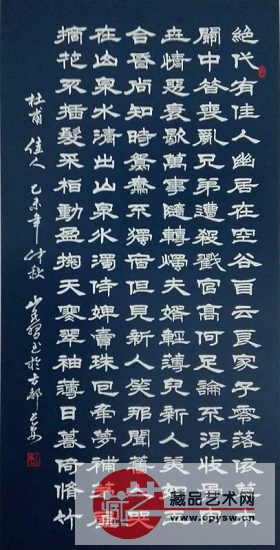 絕代有佳人幽居在空谷自云良家子零落依草木
關中昔喪亂兄弟遭殺戮官高何足論不得收骨肉
世情惡衰歇萬事隨轉燭夫婿輕薄兒新人美如玉
合昏尚知時鴛鴦不獨宿但見新人笑那聞舊人哭
在山泉水清出山泉水濁侍婢賣珠回牽蘿補茅屋
摘花不插髮采柏動盈掬天寒翠袖薄日暮倚修竹
杜甫 佳人 乙未年仲秋 书於古都長安
藏品艺术网
cpysw.cn